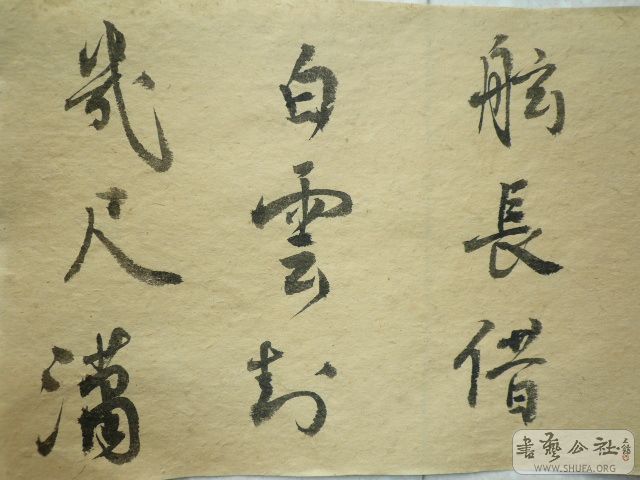 舷長借
白雲封
幾尺瀟
書藝公社
WWW.SHUFA.ORG